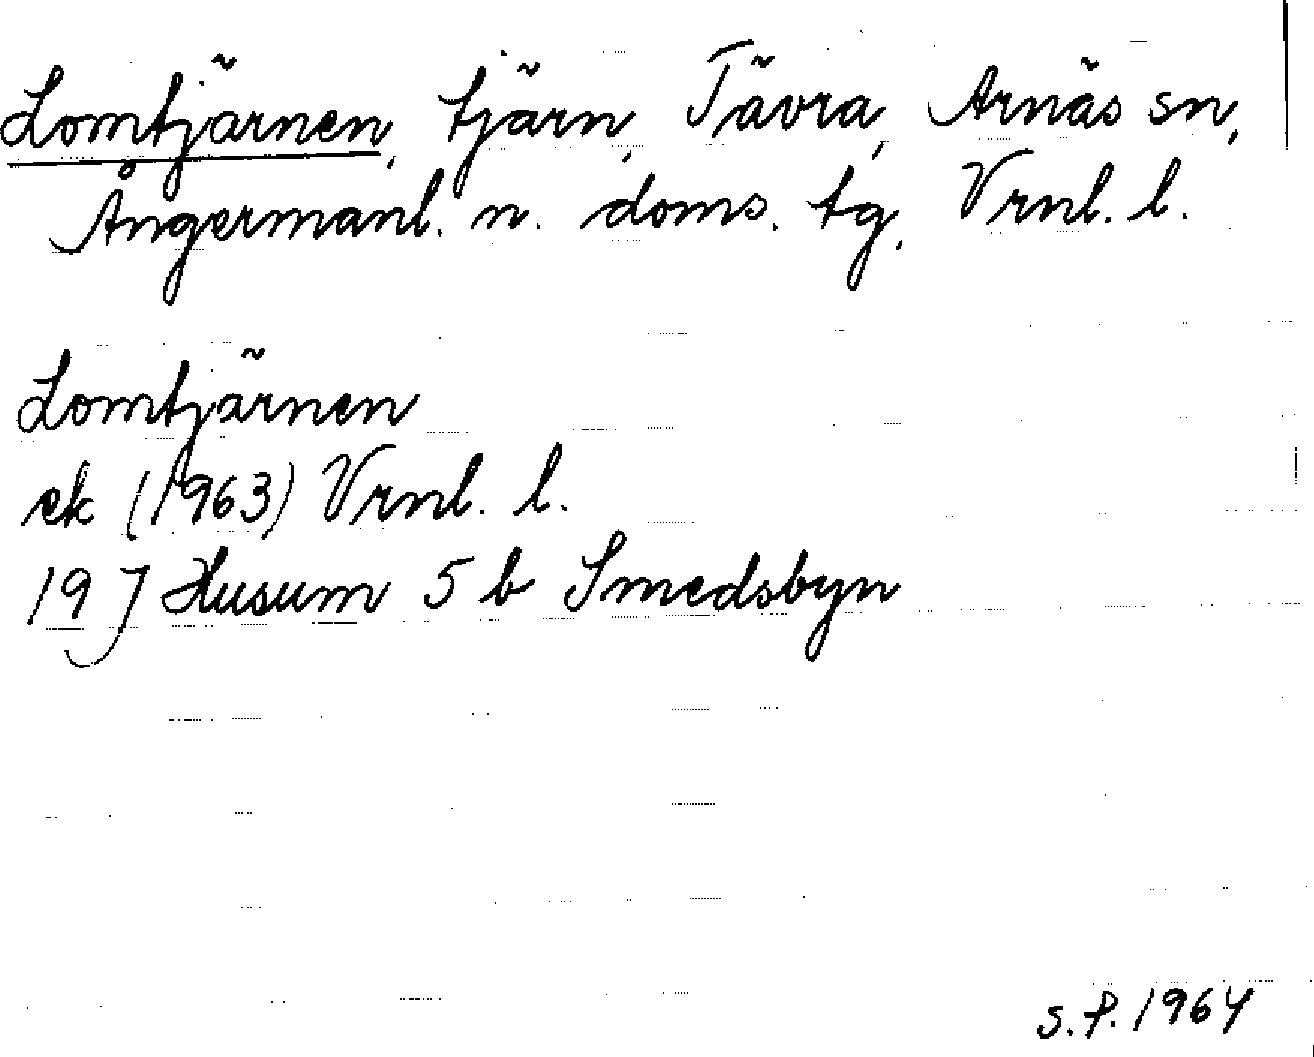 Lomtjärnen, tjärn, Tävra, Arnäs sn,
Ångermanl. n. doms. tg, Vrnl. l.
Lomtjärnen
ek (1963) Vrnl. l.
19 J Husum 5 b Smedsbyn
S.P. 1964